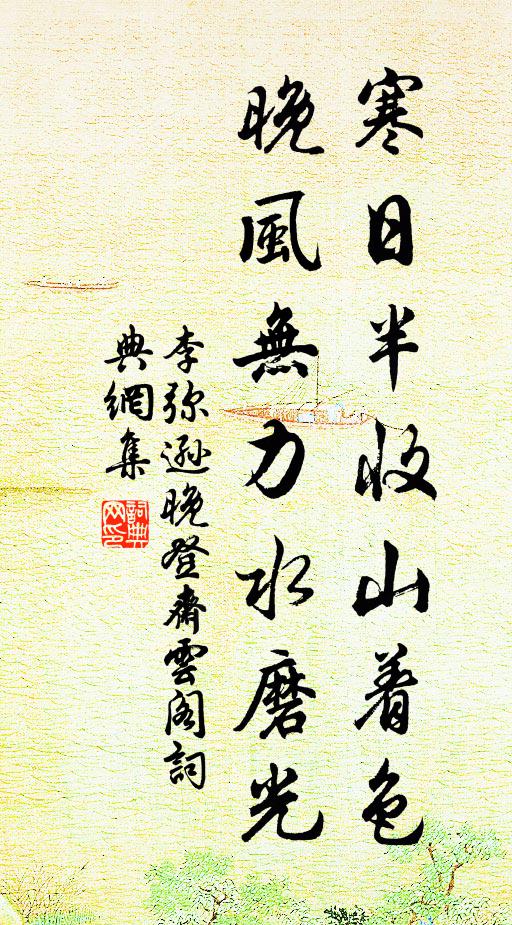 寒日半收山着色
晚風無力水磨光
李弥遜晚登齋雲阁詞
典網集
詞典
网印